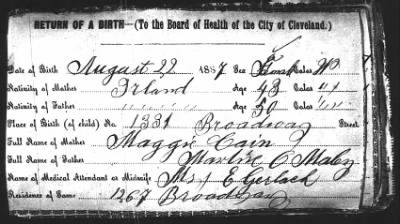 RETURN OF A BIRTH—(To the Board of Health of the City of Cleveland.)
Date of Birth August 22 1887 Sex Color W
Nativity of Mother Irland Age 43 Color " "
Nativity of Father " " " " Age 50 Color " "
Place of Birth (of child) No. 1331 Broadway Street
Full Name of Mother Maggie Cain
Full Name of Father O Maley
Name of Medical Attendant or Midwife Ms. E Gerlach
Residence of Same 1267 Broadway